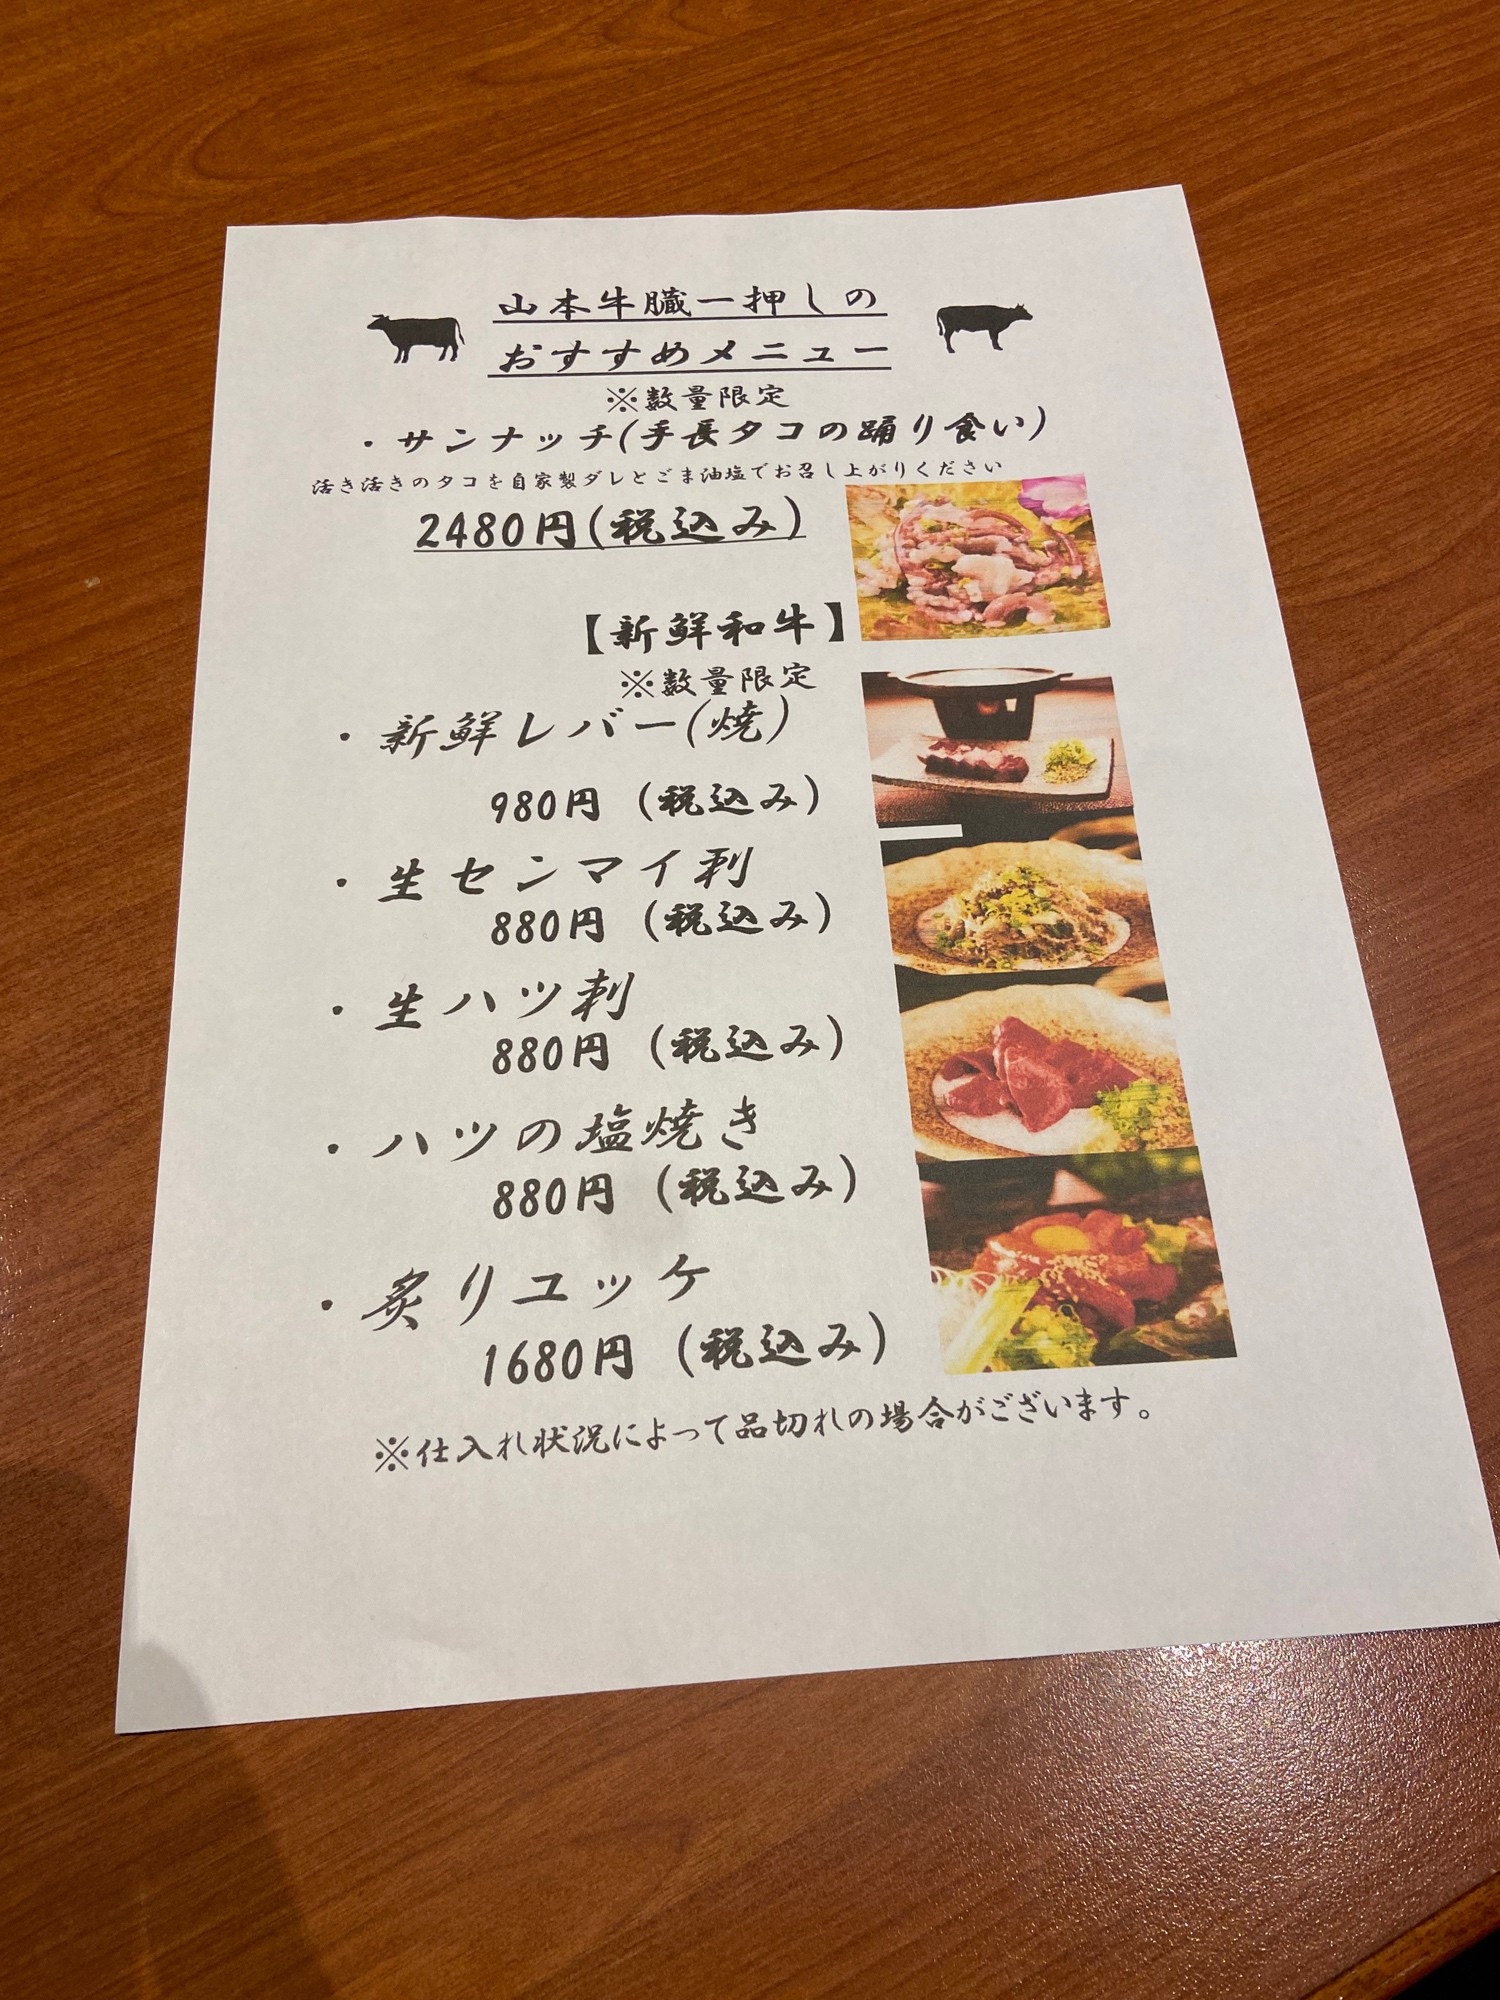 山本牛臓一押しの
おすすめメニュー
※数量限定
・サンナッチ(手長タコの踊り食い)
活き活きのタコを自家製ダレとごま油塩でお召し上がりください
2480円(税込み)
【新鮮和牛】
※数量限定
・新鮮レバー(焼)
980円 (税込み)
・生センマイ刺
880円 (税込み)
・生ハツ刺
880円 (税込み)
・ハツの塩焼き
880円 (税込み)
・炙りユッケ
1680円 (税込み)
※仕入れ状況によって品切れの場合がございます。